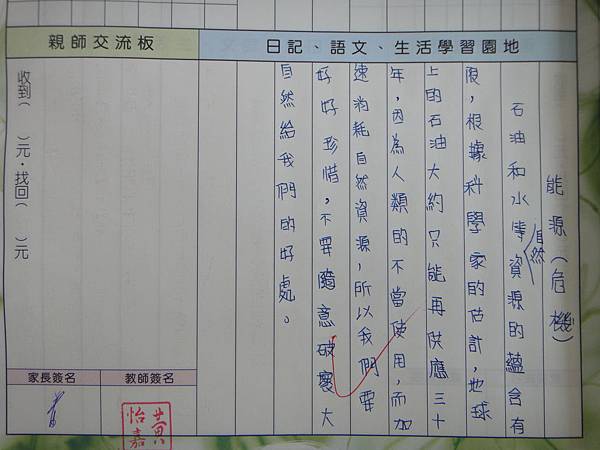 日記、語文、生活學習園地
能源(危機)
石油和水等自然資源的蘊含有
限,根據科學家的估計,地球
上的石油大約只能再供應三十
年,因為人類的不當使用,而加
速消耗自然資源,所以我們要
好好珍惜,不要隨意破壞大
自然給我們的好處。
親師交流板
收到( )元.找回( )元
教師簽名
黃怡嘉
家長簽名